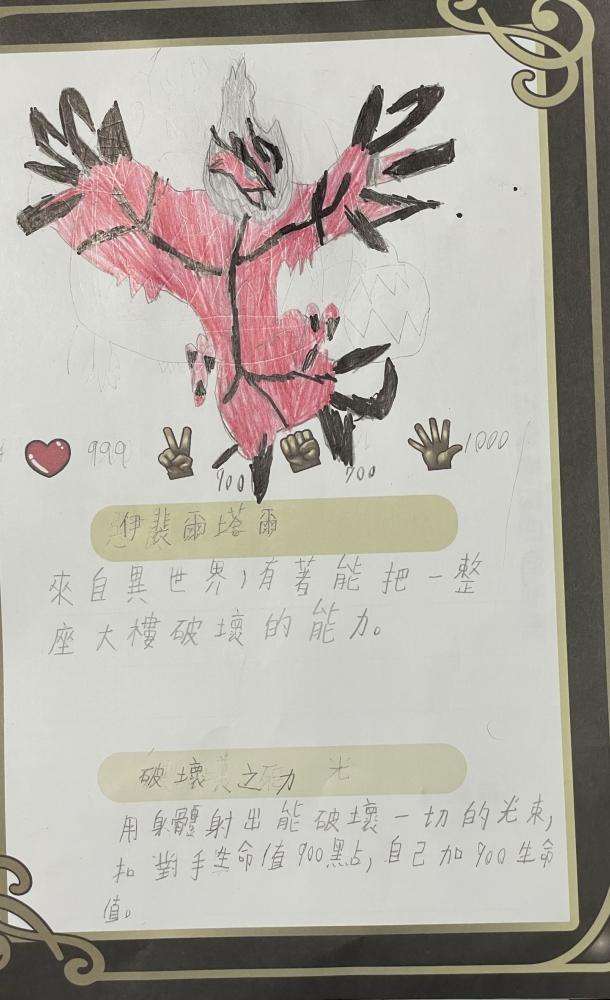 999
900
900
1000
伊裴爾塔爾
來自異世界,有著能把一整
座大樓破壞的能力。
破壞之力
用身體射出能破壞一切的光束,
扣對手生命值900點,自己加900生命
值。